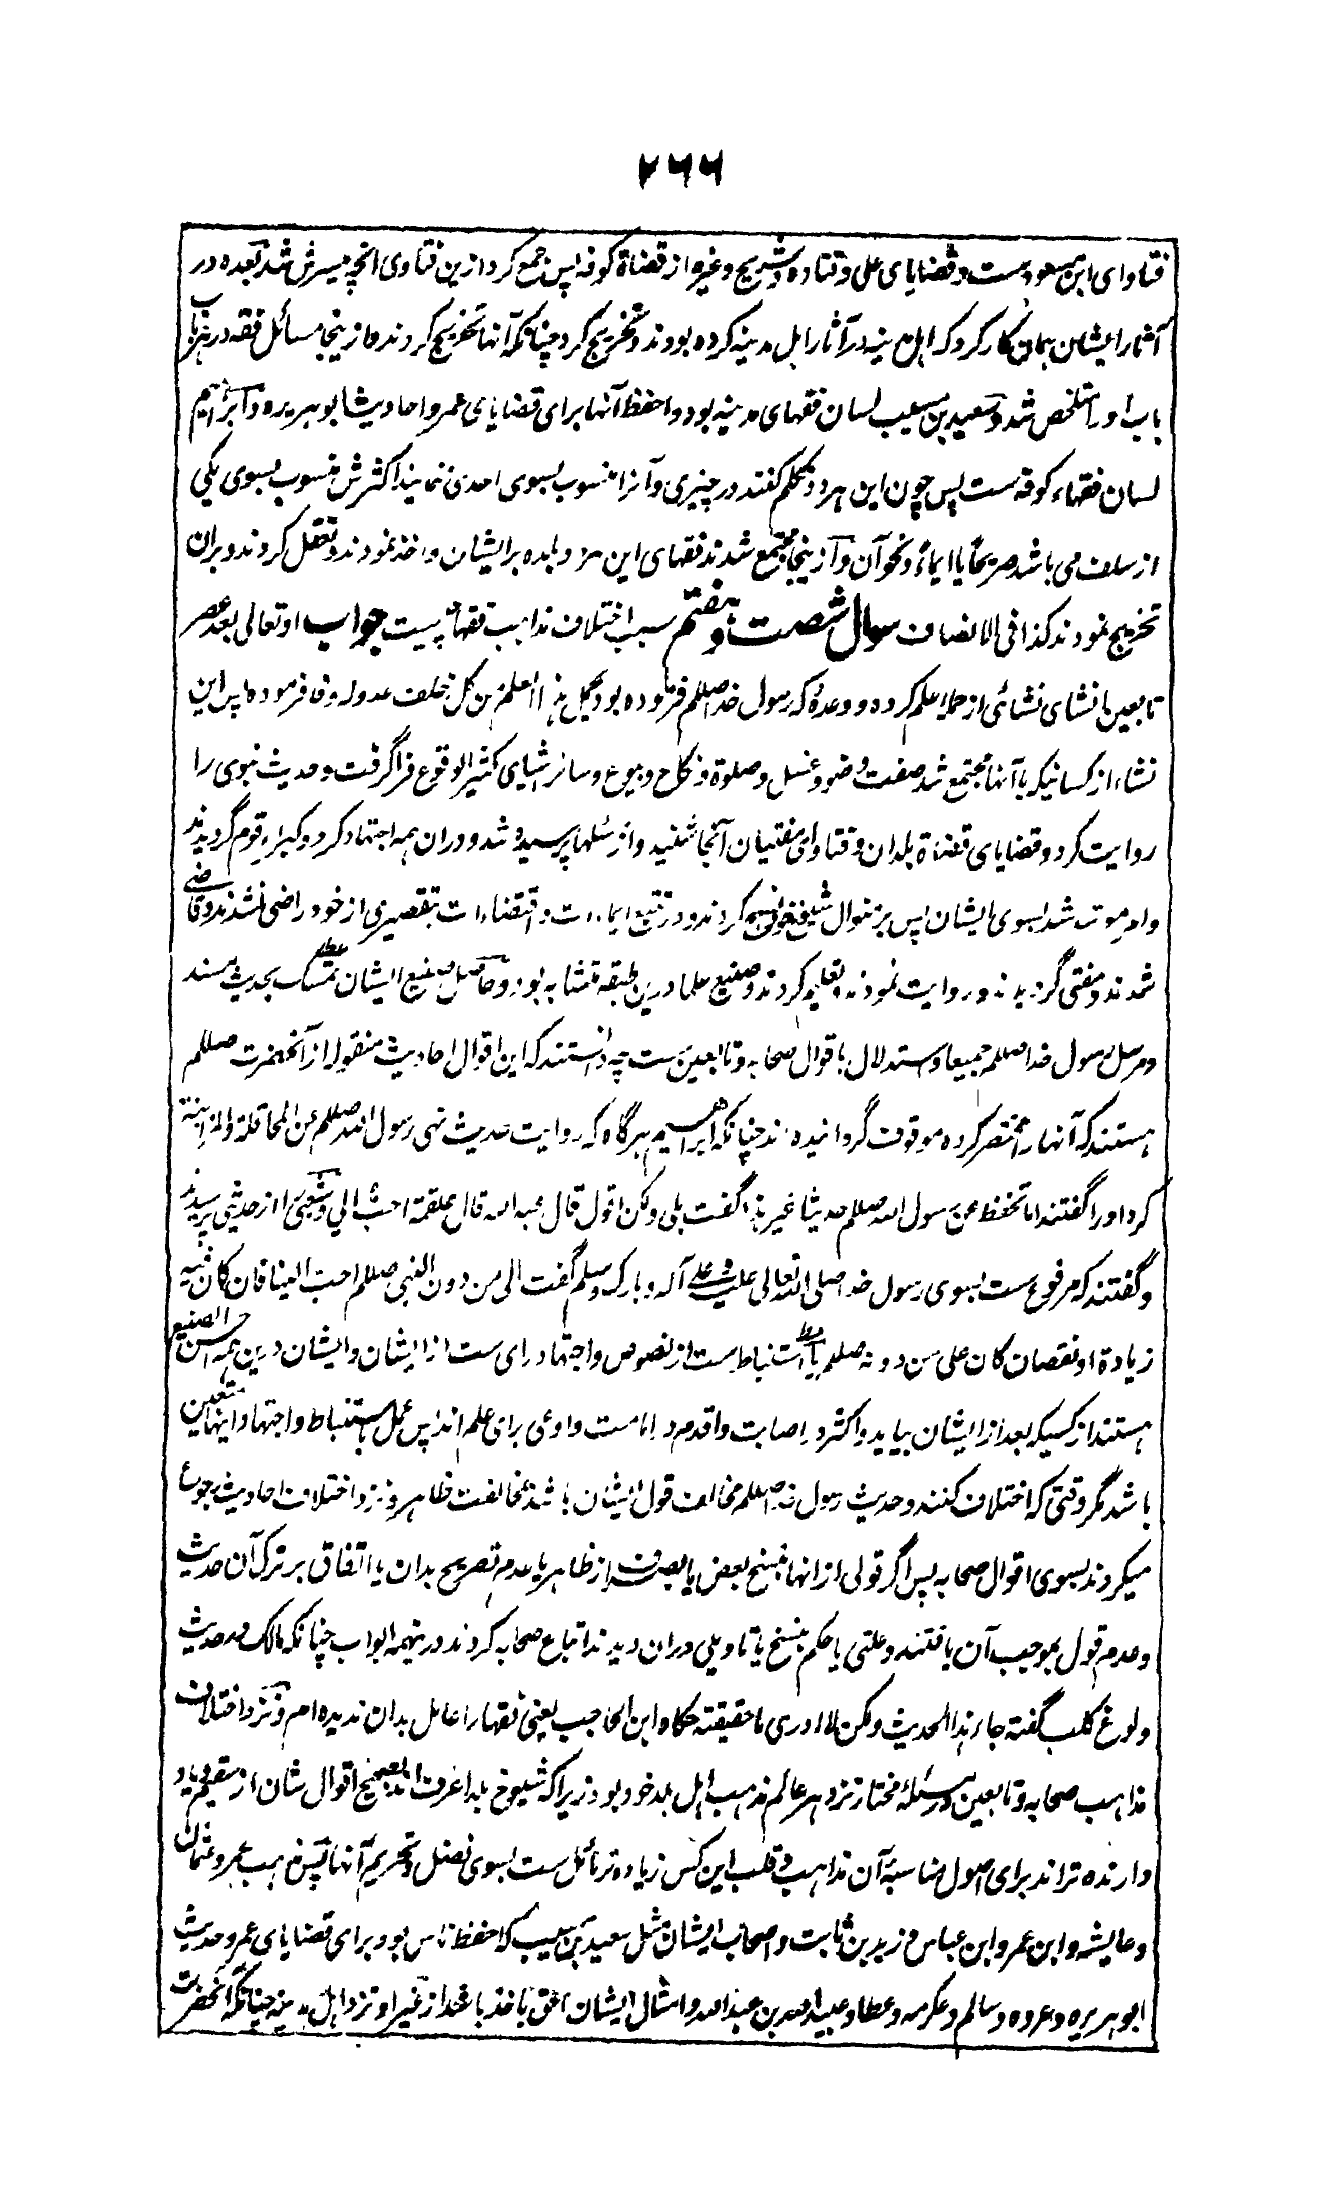 ۲۶۶
فتاوای ابن مسعود ست و قضایای علی و قتاده و شریح و غیره از قضاة کوفه پس جمع کرد ازین فتاوی انچه میسرش شد بعده در
آثار ایشان همان کار کرد که اهل مدینه در آثار اهل مدینه کرده بودند و تخریج کرد چنانکه آنها تخریج کردند و ازینجا مسائل فقه در هر باب
باب او را متلخص شد و سعید بن مسیب لسان فقهای مدینه بود و احفظ آنها برای قضایای عمر و احادیث ابو هریره و ابراهیم
لسان فقهاء کوفه ست پس چون این هر دو تکلم گفتند در چیزی و آنرا منسوب بسوی احدی ننمایند اکثرش منسوب بسوی یکی
از سلف می باشد صریحًا یا ایماءً و نحو آن و ازینجا مجتمع شدند فقهای این هر دو بلده بر ایشان و اخذ نمودند و تعقل کردند و بران
تخریج نمودند کذا فی الانصاف سوال شصت و هفتم سبب اختلاف مذاهب فقها چیست جواب او تعالی بعد عصر
تابعین انشای نشائی از حملۀ علم کرده و وعدۀ که رسول خدا صللم فرموده بود یحمل هذا العلم من کل خلف عدوله وفا فرموده پس این
نشاء از کسانیکه با آنها مجتمع شد صفت وضو و غسل و صلوة و نکاح و بیوع و سائر اشیای کثیر الوقوع فرا گرفت و حدیث نبوی را
روایت کرد و قضایای قضاة بلدان و فتاوای مفتیان آنجا شنید و از مسئلها پرسیده شد و دران همه اجتهاد کرد و کبراء قوم گردیدند
و امر موسد شد بسوی ایشان پس بر منوال شیوخ خود نسج کردند و در تتبع ایماءات و اقتضاءات تقصیری از خود راضی نشدند و قاضی
شدند و مفتی گردیدند و روایت نمودند و تعلیم کردند و صنیع علما درین طبقه متشابه بود و حاصل صنیع ایشان تمسک بحدیث مسند
و مرسل رسول خدا صللم جمیعا و استدلال باقوال صحابه و تابعین ست چه دانستند که این اقوال احادیث منقوله از آنحضرت صللم
هستند که آنها را مختصر کرده موقوف گردانیده اند چنانکه ابراهیم هرگاه که روایت حدیث نهی رسول الله صللم عن المحاقلة والمزابنة
کرد او را گفتند اما تحفظ عن رسول الله صللم حدیثا غیر هذا گفت بلی ولکن اقول قال عبد الله قال علقمة احبّ الی و شعبی را از حدیثی پرسیدند
و گفتند که مرفوع ست بسوی رسول خدا صلی الله تعالی علیه و علی آله و بارک و سلم گفت الی من دون النبی صللم احب الینا فان کان فیه
زیادة او نقصان کان علی من دونه صللم یا استنباط ست از نصوص و اجتهاد رای ست از ایشان و ایشان درین همه احسن الصنیع
هستند از کسیکه بعد از ایشان بیاید و اکثر در اصابت و اقدم در زمانست و اوعی برای علم اند پس عمل باستنباط و اجتهاد اینها متعین
باشد مگر وقتی که اختلاف کنند و حدیث رسول خدا صللم مخالف قول ایشان باشد بمخالفت ظاهره و نزد اختلاف احادیث رجوع
میکردند بسوی اقوال صحابه پس اگر قولی از انها بنسخ بعض یا بصرف از ظاهر یا عدم تصریح بدان یا اتفاق بر ترک آن حدیث
و عدم قول بموجب آن یافتند و علتی یا حکم بنسخ یا تاویلی دران دیدند اتباع صحابه کردند درینهمه ابواب چنانکه مالک در حدیث
ولوغ کلب گفته جاء هذا الحدیث ولکن لا ادری ما حقیقته حکاه ابن الحاجب یعنی فقها را عامل بدان ندیده ام و نزد اختلاف
مذاهب صحابه و تابعین در مسئلۀ مختار نزد هر عالم مذهب اهل بلد خود بود زیرا که شیوخ بلد اعرف اند بصحیح اقوال شان از سقیم و یاد
دارنده تر اند برای اصول مناسبۀ آن مذاهب و قلب این کس زیاده تر مائل ست بسوی فضل و تحریم آنها پس مذهب عمر و عثمان
و عایشه و ابن عمر و ابن عباس و زید بن ثابت و اصحاب ایشان مثل سعید بن مسیب که احفظ ناس بود برای قضایای عمر و حدیث
ابو هریره و عروه و سالم و عکرمه و عطا و عبید الله بن عبد الله و امثال ایشان احق باخذ باشد از غیر او نزد اهل مدینه چنانکه آنحضرت